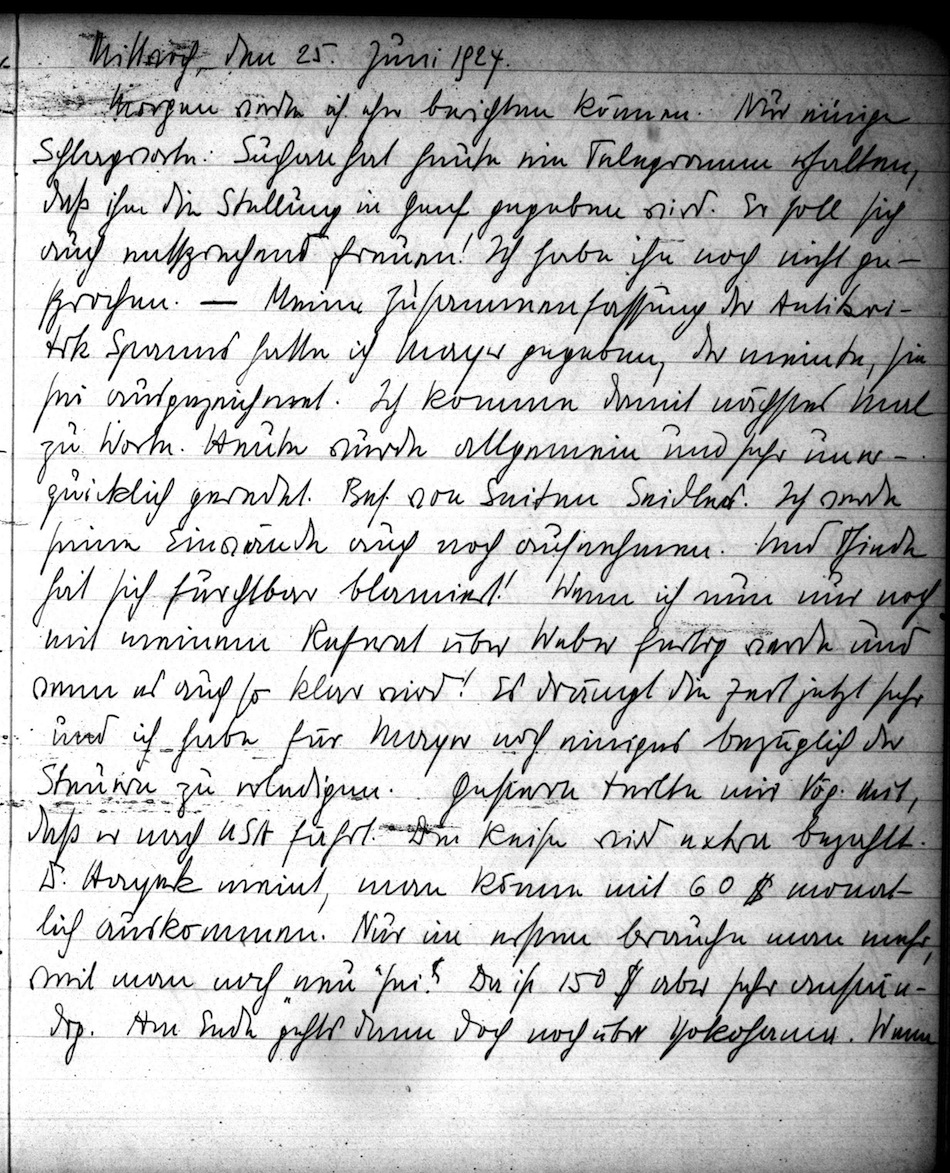 Mittwoch, den 25. Juni 1924.
Morgen werde ich eher berichten können. Nur einige
Schlagworte: Suchan hat heute ein Telegramm erhalten,
daß ihm die Stellung in Genf gegeben wird. Er soll sich
auch entsprechend freuen! Ich habe ihn noch nicht ge-
sprochen. — Meine Zusammenfassung der Antikri-
tik Spanns hatte ich Mayer gegeben, der meinte, sie
sei ausgezeichnet. Ich komme damit nächstes Mal
zu Worte. Heute wurde allgemein und sehr uner-
quicklich geredet. Bes. von Seiten Seidlers. Ich werde
seine Einwände auch noch aufnehmen. Und Thiede
hat sich furchtbar blamiert! Wenn ich nun nur noch
mit meinem Referat über Weber fertig werde und
wenn es auch so klar wird! Es drängt die Zeit jetzt sehr
und ich habe für Mayer noch einiges bezüglich der
Steuern zu erledigen. Gestern teilte mir Vög. mit,
daß er nach USA fährt. Die Reise wird extra bezahlt.
D. Hayek meint, man könne mit 60 $ monat-
lich auskommen. Nur im ersten brauche man mehr,
weil man noch „neu“ sei! Da ist 150 $ aber sehr anstän-
dig. Am Ende gehts dann doch noch über Yokohama. Wenn